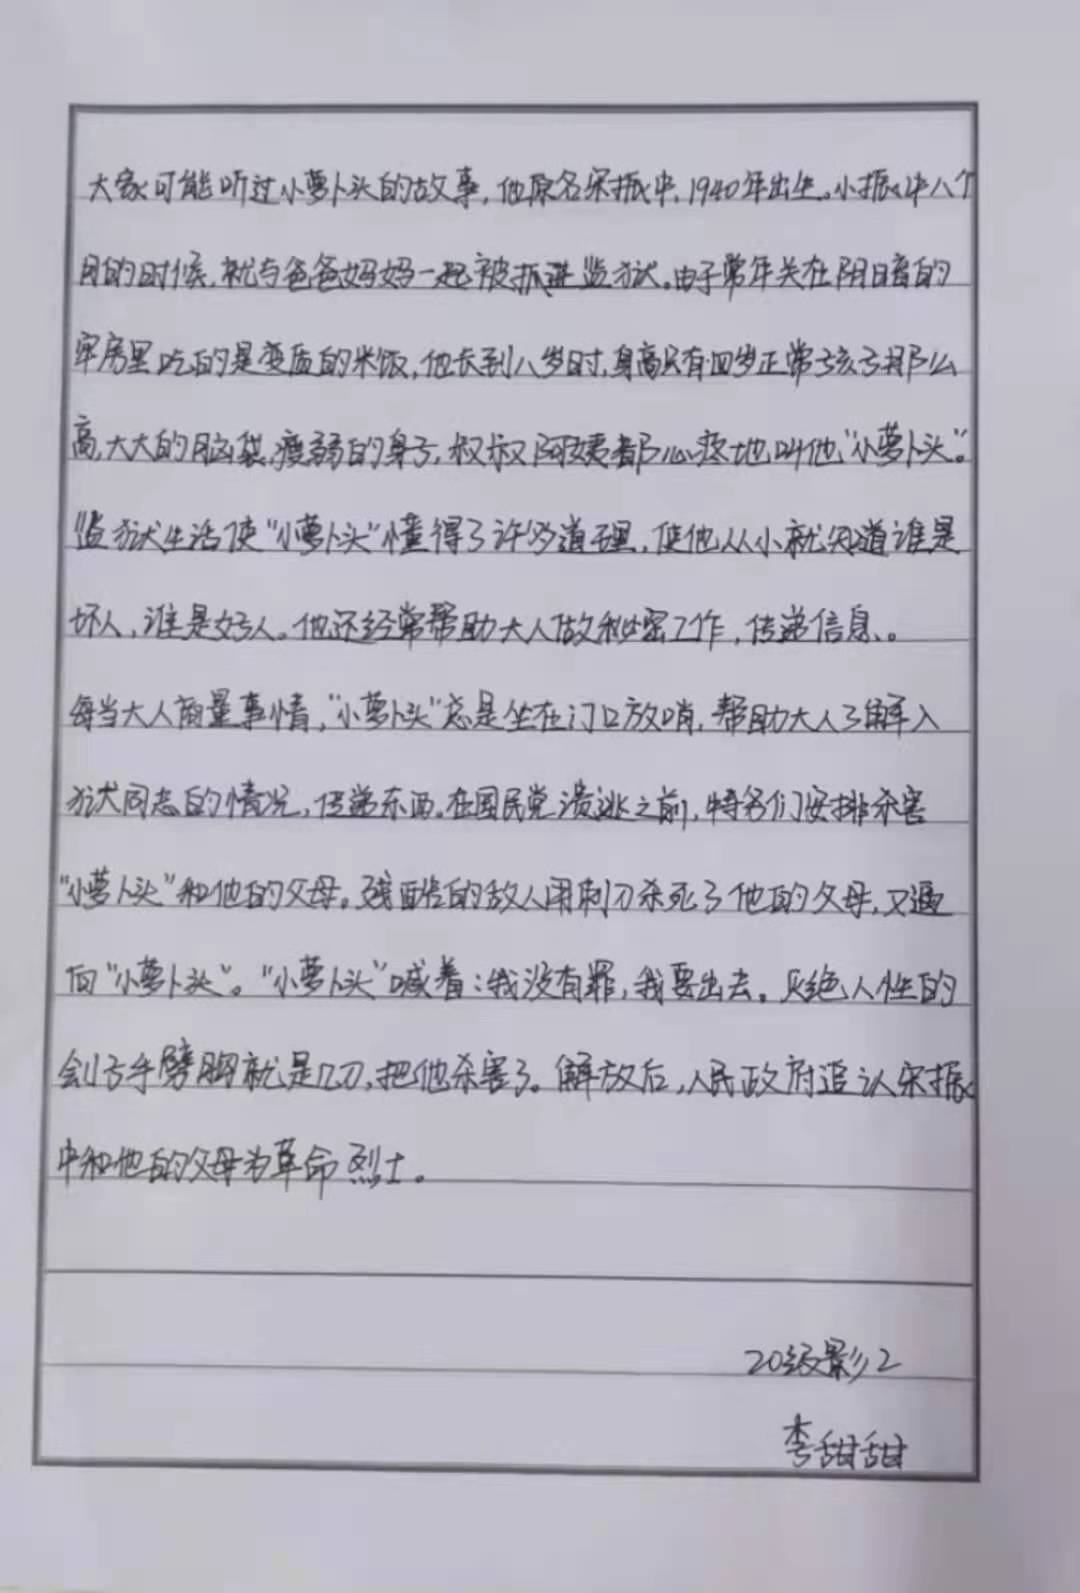 大家可能听过小萝卜头的故事，他原名宋振中，1940年出生。小振中八个
月的时候，就与爸爸妈妈一起被抓进监狱。由于常年关在阴暗的
牢房里吃的是变质的米饭，他长到八岁时，身高只有四岁正常孩子那么
高，大大的脑袋，瘦弱的身子，叔叔阿姨都心疼地叫他“小萝卜头”。
监狱生活使“小萝卜头”懂得了许多道理，使他从小就知道谁是
坏人，谁是好人。他还经常帮助大人做秘密工作，传递信息、。
每当大人商量事情，“小萝卜头”总是坐在门口放哨，帮助大人了解入
狱同志的情况，传递东西。在国民党溃逃之前，特务们安排杀害
“小萝卜头”和他的父母。残酷的敌人用刺刀杀死了他的父母，又逼
向“小萝卜头”。“小萝卜头”喊着：我没有罪，我要出去。灭绝人性的
刽子手劈胸就是几刀，把他杀害了。解放后，人民政府追认宋振
中和他的父母为革命烈士。
20级影2
李甜甜